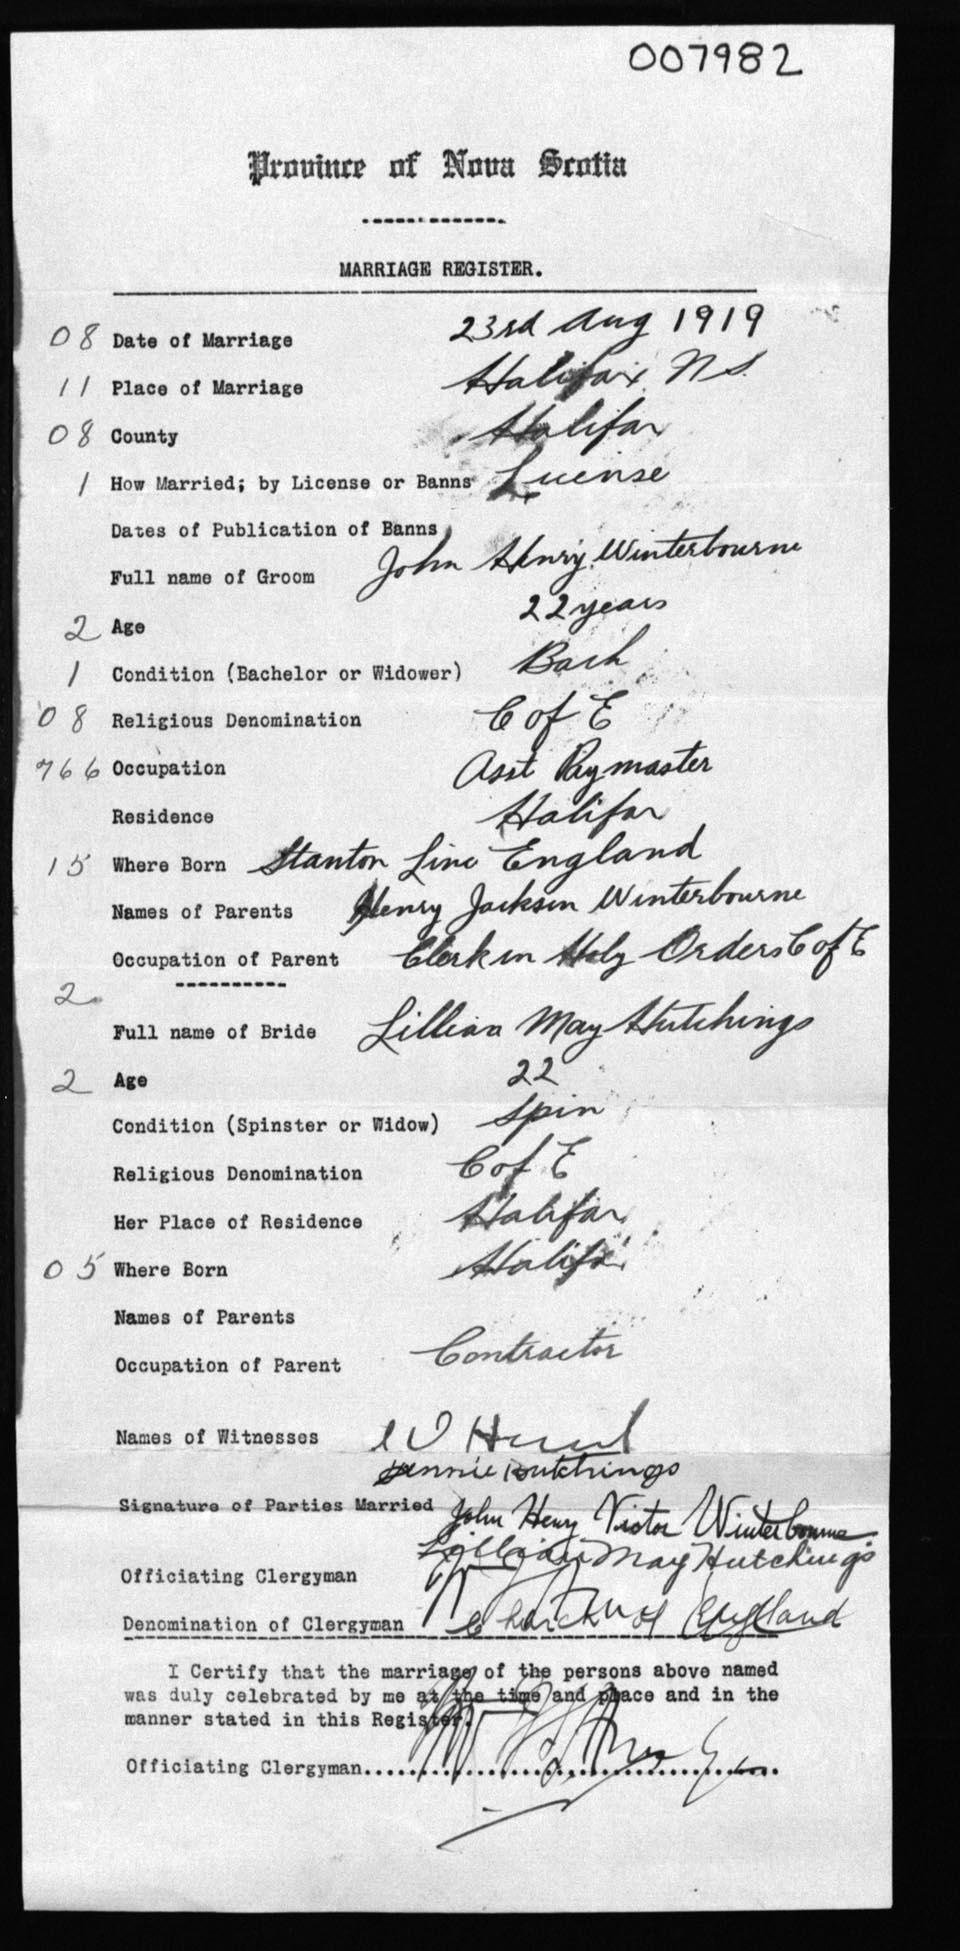 007982
Province of Nova Scotia
MARRIAGE REGISTER.
08 Date of Marriage 23rd Aug 1919
11 Place of Marriage Halifax N S.
08 County Halifax
1 How Married; by License or Banns License
Dates of Publication of Banns
Full name of Groom John Henry Winterbourne
2 Age 22 years
1 Condition (Bachelor or Widower) Bach
08 Religious Denomination C of E
766 Occupation Asst Paymaster
Residence Halifax
15 Where Born Stanton Line England
Names of Parents Henry Jackson Winterbourne
Occupation of Parent Clerk in Holy Orders C of E
2
Full name of Bride Lillian May Hutchings
2 Age 22
Condition (Spinster or Widow) Spin
Religious Denomination C of E
Her Place of Residence Halifax
05 Where Born Halifax
Names of Parents
Occupation of Parent Contractor
Names of Witnesses
Jennie Hutchings
Signature of Parties Married John Henry Victor Winterbourne
Lillian May Hutchings
Officiating Clergyman
Denomination of Clergyman Church of England
I Certify that the marriage of the persons above named
was duly celebrated by me at the time and place and in the
manner stated in this Register.
Officiating Clergyman